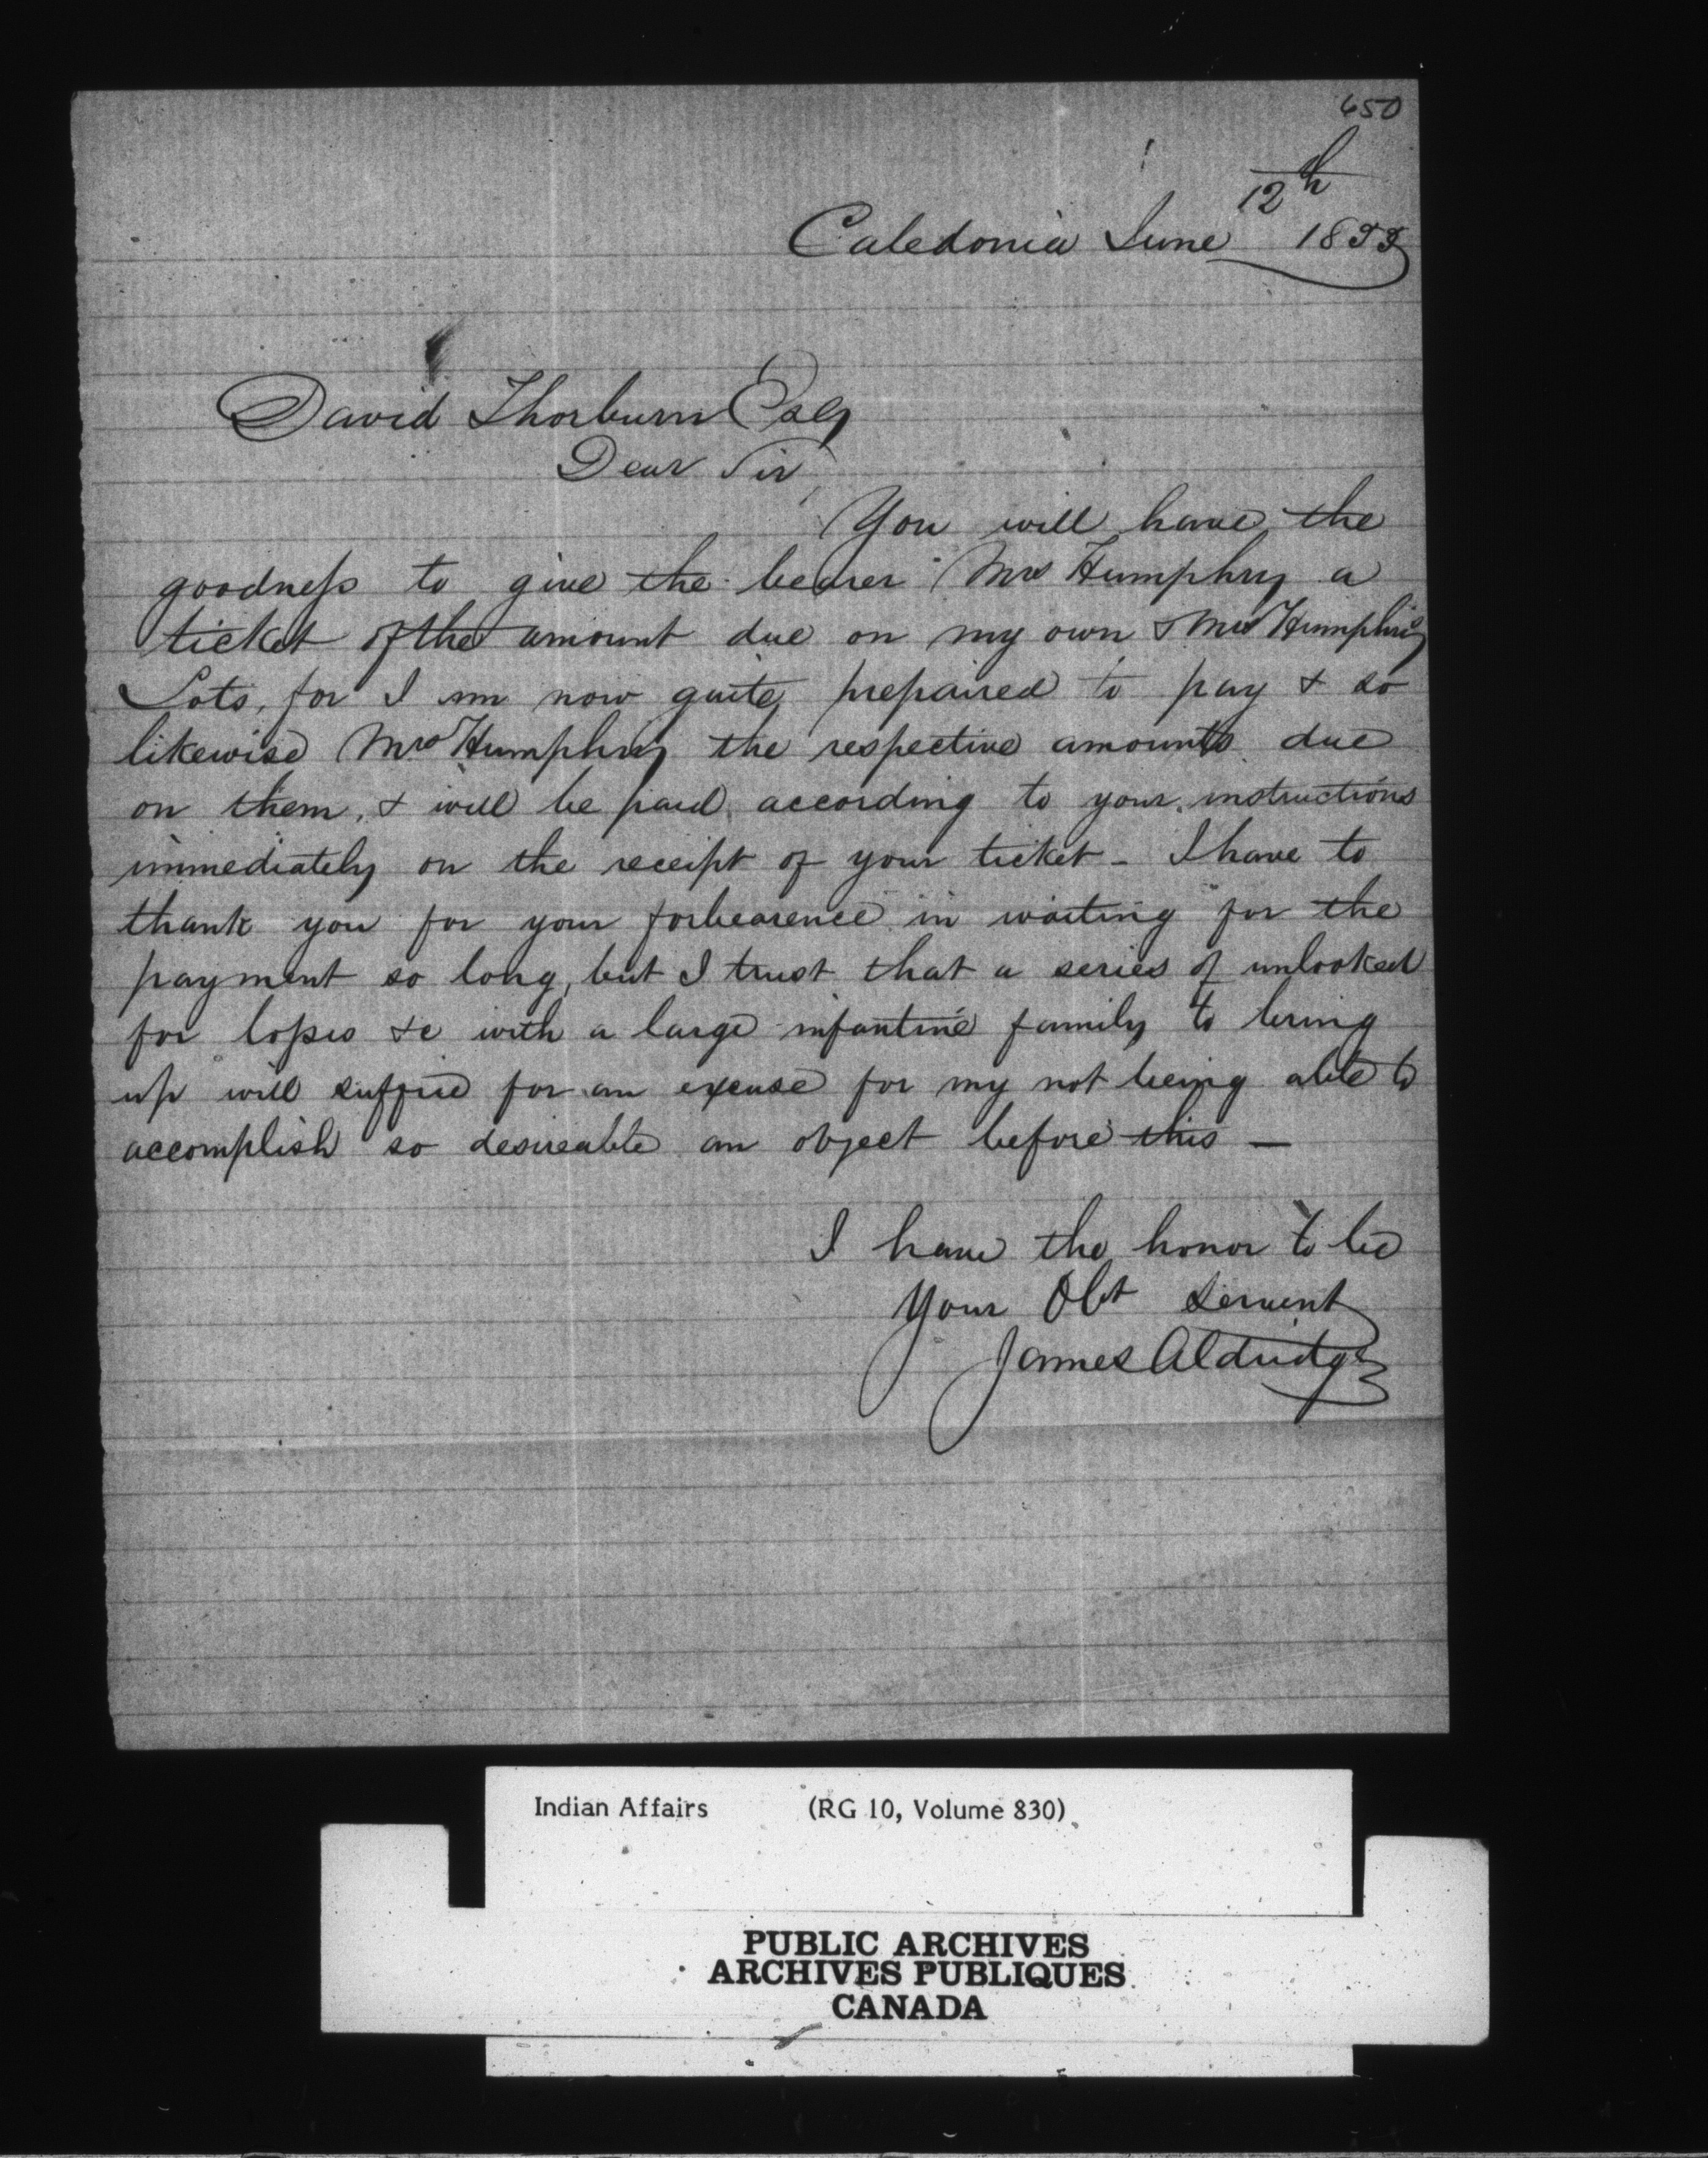 650
Caledonia June 12th 1855
David Thorburn Esq
Dear Sir,
You will have the
goodness to give the bearer Mrs Humphry a
ticket of the amount due on my own & Mrs Humphris
Lots, for I am now quite prepaired to pay & so
likewise Mrs Humphry the respective amounts due
on them, & will be paid according to your instructions
immediately on the receipt of your ticket - I have to
thank you for your forbearence in waiting for the
payment so long, but I trust that a series of unlooked
for losses &c with a large infantine family to bring
up will suffice for an excuse for my not being able to
accomplish so desireable an object before this —
I have the honor to be
Your Obt Servent
James Aldridge
Indian Affairs (RG 10, Volume 830)
PUBLIC ARCHIVES
ARCHIVES PUBLIQUES
CANADA